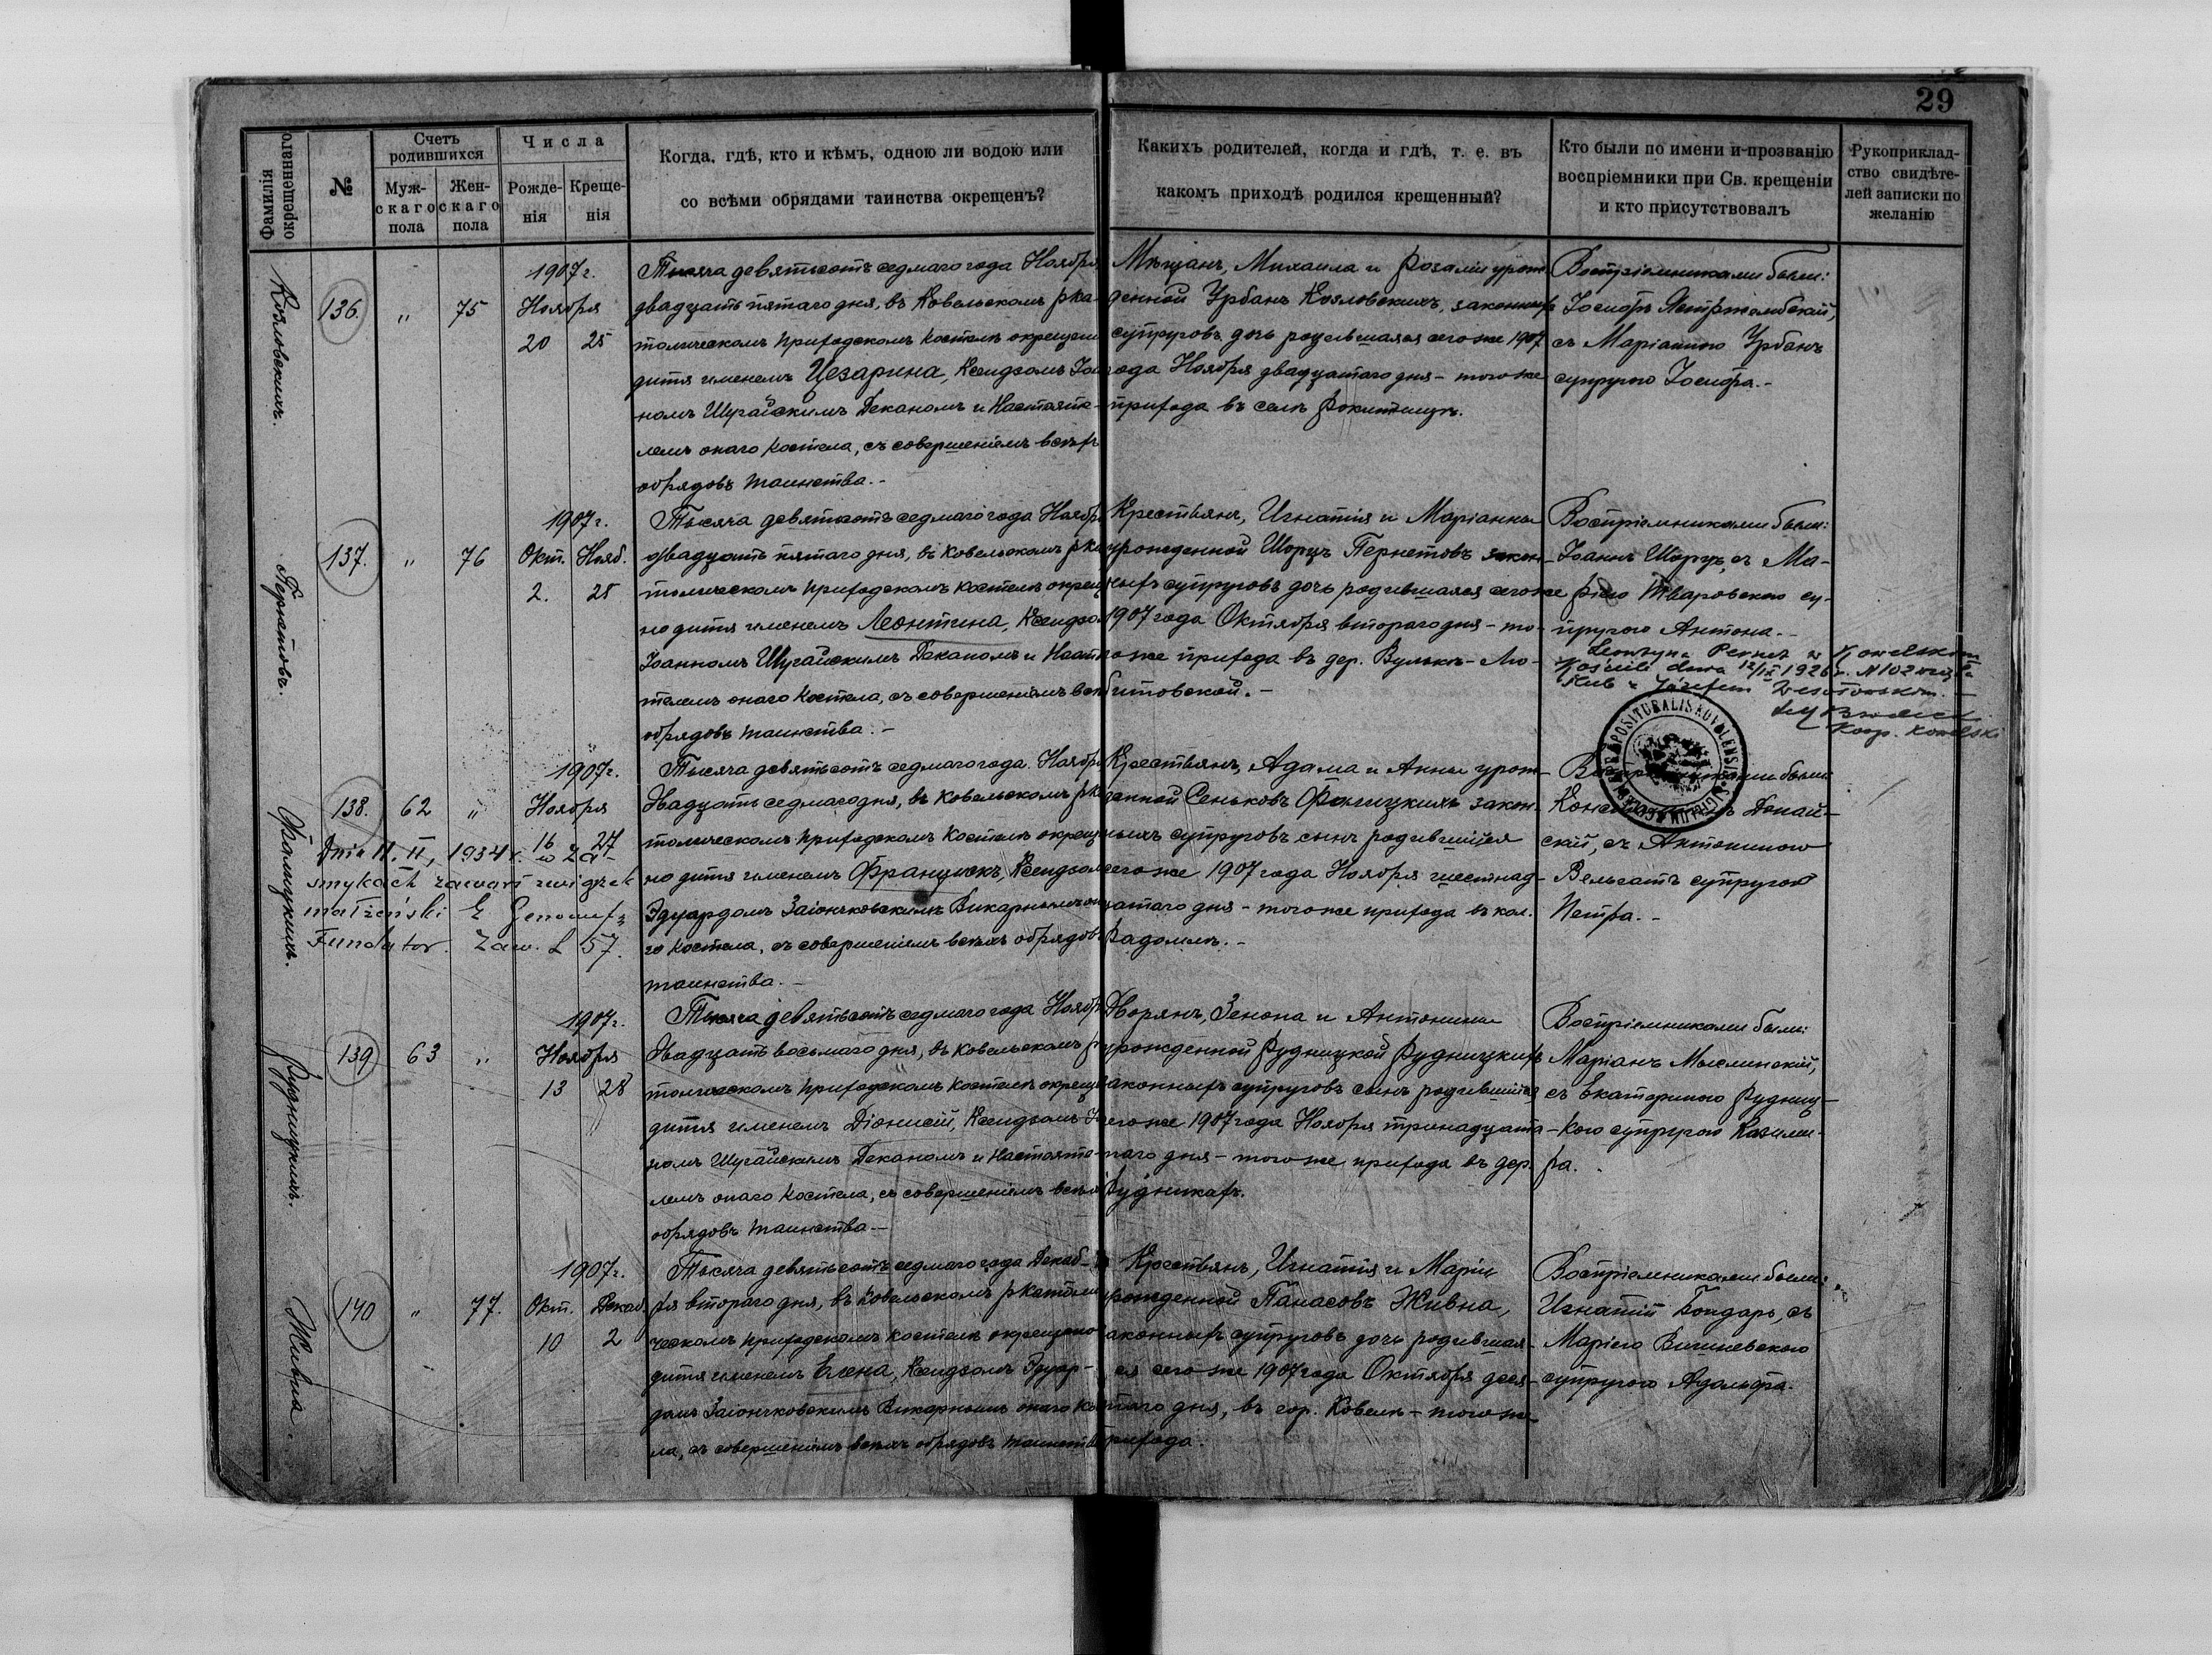 29
Фамилія окрещеннаго
№
Счетъ родившихся
Мужскаго пола
Женскаго пола
Числа
Рожденія
Крещенія
Когда, гдѣ, кто и кѣмъ, одною ли водою или
со всѣми обрядами таинства окрещенъ?
Какихъ родителей, когда и гдѣ, т. е. въ
какомъ приходѣ родился крещенный?
Кто были по имени и прозванію
воспріемники при Св. крещеніи
и кто присутствовалъ
Рукоприклад-
ство свидѣте-
лей записки по
желанію
Козловскихъ.
136.
"
75
1907 г.
Ноября
20 25
Тысяча девятьсотъ седмаго года Ноября
двадцать пятаго дня, въ Ковельскомъ рка-
толическомъ приходскомъ костелѣ окрещено
дитя именемъ Цезарина, Ксендзомъ Іоан-
номъ Шугайскимъ Деканомъ и Настояте-
лемъ онаго костела, съ совершеніемъ всѣхъ
обрядовъ таинства.-
Мѣщанъ, Михаила и Розаліи урож-
денной Урбанъ Козловскихъ, законныхъ
супруговъ дочь родившаяся сего же 1907
года Ноября двадцатаго дня - того же
прихода въ селѣ
Воспріемниками были:
Іосифъ
съ Маріанною Урбанъ
супругою Іосифа.-
Пернетовъ.
137.
"
76
1907 г.
Окт. Нояб.
2. 25
Тысяча девятьсотъ седмаго года Ноября
двадцать пятаго дня, въ Ковельскомъ рка
толическомъ приходскомъ костелѣ окреще
но дитя именемъ Леонтина, Ксендзом
Іоанномъ Шугайскимъ Деканомъ и Настоя
телемъ онаго костела, съ совершеніемъ всѣх
обрядовъ таинства.-
Крестьянъ, Игнатія и Маріанны
урожденной Шорцъ Пернетовъ закон-
ныхъ супруговъ дочь родившаяся сего же
1907 года Октября втораго дня - то-
гоже прихода въ дер. Вулькѣ-Лю-
битовской.-
Воспріемниками были:
Іоаннъ Шорцъ, съ Ма-
ріею Тваровскою су-
пругою Антона.-
Leontyna Pernet w Kowelskim
Kościele dawa 12/IX 1926 r. N 102
ślub z Józefem
Koop. Kowelski
Фраллицкихъ.
138.
62
"
1907 г.
Ноября
16 27
Dnia 11.II, 1934 r. w Za-
smykach zawarł związek
małżeński z Genowefą
Fundator. Zaw. L 57.
Тысяча девятьсотъ седмаго года Ноября
двадцать седмаго дня, въ Ковельскомъ рка
толическомъ приходскомъ костелѣ окреще
но дитя именемъ Францискъ, Ксендзом
Эдуардомъ Заіончковскимъ Викарнымъ она
го костела, съ совершеніемъ всѣхъ обрядовъ
таинства.-
Крестьянъ, Адама и Анны урож-
денной Сеньковъ закон-
ныхъ супруговъ сынъ родившійся
сего же 1907 года Ноября шестнад-
цатаго дня - того же прихода въ кол.
Радомлѣ.-
Воспріемниками были:
скій, съ Антониною
Вельгатъ супругою
Петра.-
Рудницкихъ.
139
63
"
1907 г.
Ноября
13 28
Тысяча девятьсотъ седмаго года Ноябр
двадцать восьмаго дня, въ Ковельскомъ р
толическомъ приходскомъ костелѣ окреще
дитя именемъ Діонисій, Ксендзомъ Іо
номъ Шугайскимъ Деканомъ и Настояте-
лемъ онаго костела, съ совершеніемъ всѣх
обрядовъ таинства-
Дворянъ, Зенона и Антонины
урожденной Рудницкой Рудницкихъ
законныхъ супруговъ сынъ родившійся
сего же 1907 года Ноября тринадцата-
го дня - того же прихода въ дер.
Рудникахъ.
Воспріемниками были:
Маріанъ Мыслинскій,
съ Екатериною Рудниц-
кою супругою Казими-
ра.
Живна.
140
"
77.
1907 г.
Окт. Декаб.
10 2
Тысяча девятьсотъ седмаго года Декаб-
ря втораго дня, въ Ковельскомъ ркатоли
ческомъ приходскомъ костелѣ окрещено
дитя именемъ Елена, Ксендзомъ Эдуар-
домъ Заіончковскимъ Викарнымъ онаго ко
ла, съ совершеніемъ всѣхъ обрядовъ таинства
Крестьянъ, Игнатія и Маріи
рожденной Панасовъ Живна,
законныхъ супруговъ дочь родившая-
ся сего же 1907 года Октября деся-
таго дня, въ гор. Ковелѣ - того же
прихода.
Воспріемниками были:
Игнатій Бондаръ, съ
Маріею Вишневскою
супругою Адольфа.